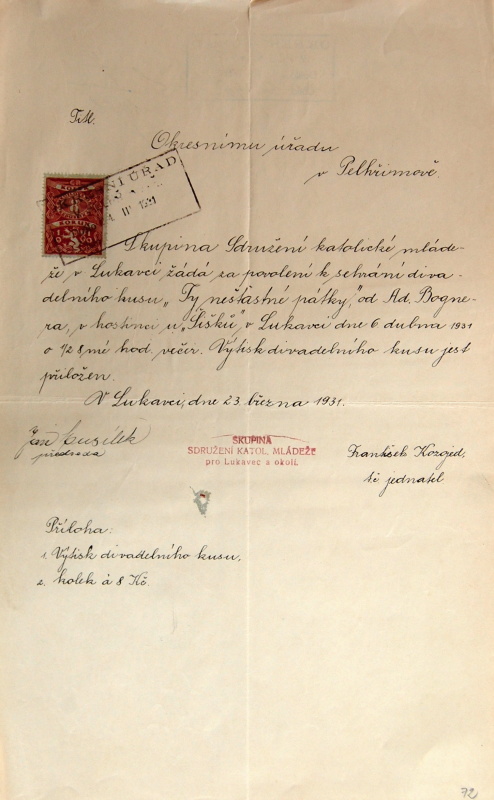 Titl.
Okresnímu úřadu
v Pelhřimově.
ÚŘAD
1931
Skupina Sdružení katolické mláde-
že v Lukavci žádá za povolení k sehrání diva-
delního kusu „Ty nešťastné pátky", od Ad. Bogne-
ra, v hostinci u „Šišků" v Lukavci dne 6 dubna 1931
o 1/2 8 mé hod. večer. Výtisk divadelního kusu jest
přiložen.
V Lukavci, dne 23. března 1931.
Jan
předseda
SKUPINA
SDRUŽENÍ KATOL. MLÁDEŽE
pro Lukavec a okolí.
František
t.č. jednatel
Příloha:
1. Výtisk divadelního kusu,
2. kolek á 8 Kč.
72